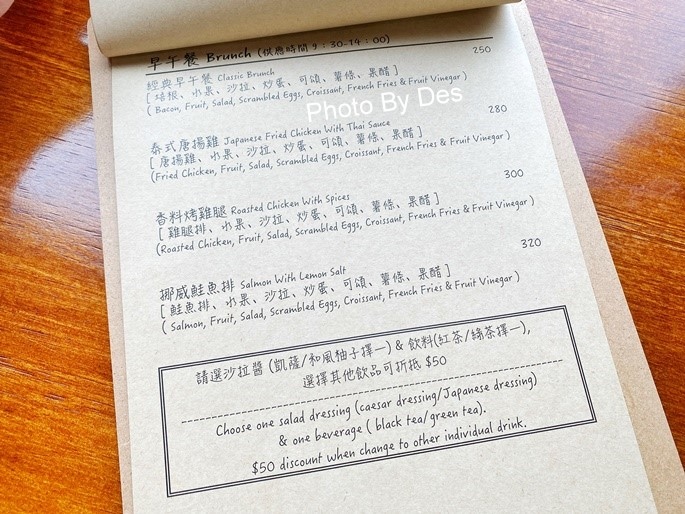 早午餐 Brunch (供應時間 9:30-14:00)
經典早午餐 Classic Brunch 250
[ 培根、水果、沙拉、炒蛋、可頌、薯條、果醋 ]
( Bacon, Fruit, Salad, Scrambled Eggs, Croissant, French Fries & Fruit Vinegar )
Photo By Des
泰式唐揚雞 Japanese Fried Chicken With Thai Sauce 280
[ 唐揚雞、水果、沙拉、炒蛋、可頌、薯條、果醋 ]
(Fried Chicken, Fruit, Salad, Scrambled Eggs, Croissant, French Fries & Fruit Vinegar )
香料烤雞腿 Roasted Chicken With Spices 300
[ 雞腿排、水果、沙拉、炒蛋、可頌、薯條、果醋 ]
(Roasted Chicken, Fruit, Salad, Scrambled Eggs, Croissant, French Fries & Fruit Vinegar )
挪威鮭魚排 Salmon With Lemon Salt 320
[ 鮭魚排、水果、沙拉、炒蛋、可頌、薯條、果醋 ]
( Salmon, Fruit, Salad, Scrambled Eggs, Croissant, French Fries & Fruit Vinegar )
請選沙拉醬 (凱薩/和風柚子擇一) & 飲料(紅茶/綠茶擇一),
選擇其他飲品可折抵 $50
Choose one salad dressing (caesar dressing/Japanese dressing)
& one beverage ( black tea/green tea).
$50 discount when change to other individual drink.